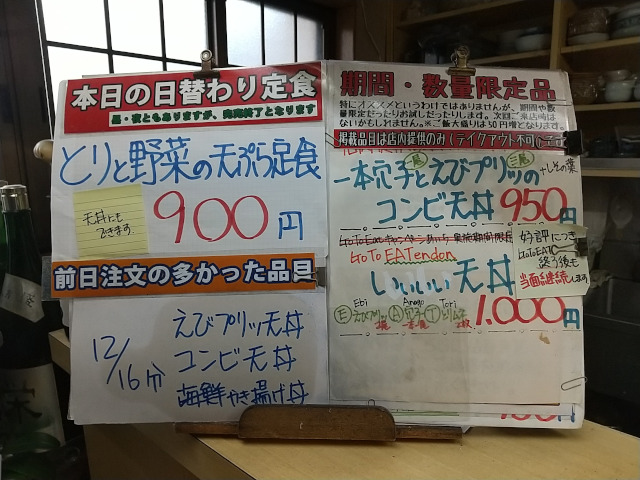 本日の日替わり定食
昼・夜ともありますが、完売終了となります
とりと野菜の天ぷら定食
天丼にも
できます
900円
前日注文の多かった品目
12/16分
えびプリッツ天丼
コンビ天丼
海鮮かき揚げ丼
期間・数量限定品
特にオススメというわけではありませんが、期間や数
量限定だったりお試しだったりします。次回ご来店時は
ないかもしれません。※ご飯大盛りは50円増となります。
掲載品目は店内提供のみ(テイクアウト不可)
一本穴子とえびプリッツの
+しその葉
コンビ天丼 950円
GoTo EATendon
いいいい天丼
1,000円
Ebi Anago Tori
E えびプリッツ A 穴子 T とりムネ
好評につき
GoToEAT
終了後も
当面継続します